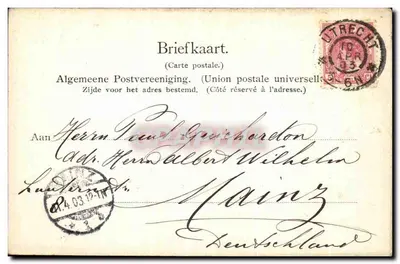 Briefkaart.
(Carte postale.)
Algemeene Postvereeniging. (Union postale universelle
Zijde voor het adres bestemd. (Côté réservé à l'adresse.)
UTRECHT
Aan Herrn Paul
adr. Herrn Albert Wilhelm
Mainz
Deutschland
MAINZ
.4.03